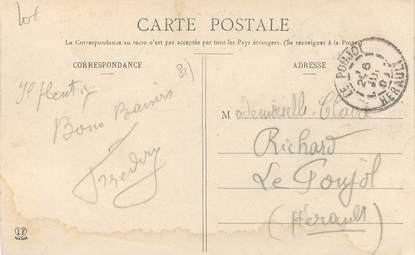 Lot
CARTE POSTALE
La Correspondance au recto n'est pas acceptée par tous les Pays étrangers. (Se renseigner à la Poste)
CORRESPONDANCE
ADRESSE
81)
LE POUJOL
HERAULT
Bons Baisers
Mademoiselle Claire
Richard
Le Poujol
(Hérault)